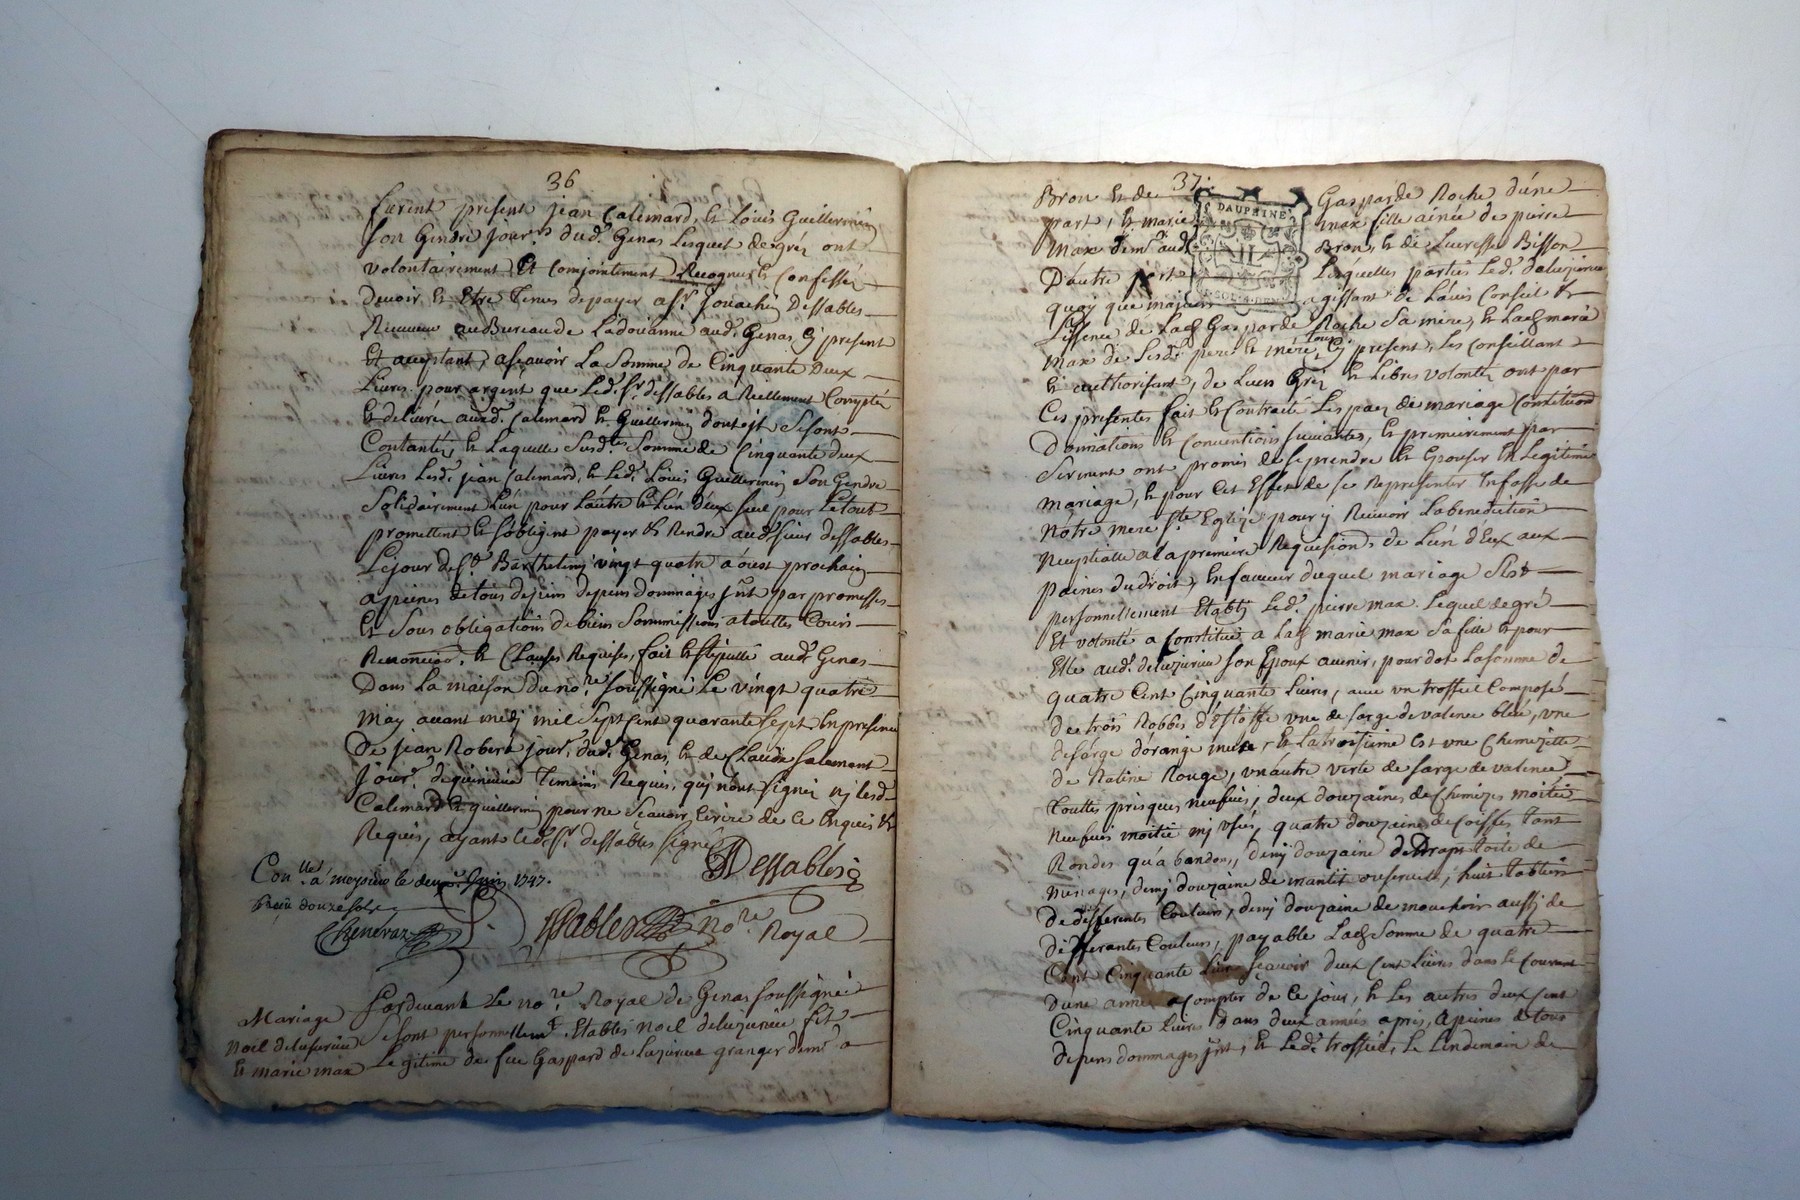 36
furent présent jean Calemard, et Louis Guillermin
son Gendre jour.rs dud.t Genas Lesquels de gréz ont
volontairement Et Conjointement Recogneu et Confessés
devoir et Etre Tenus de payer a s.r Jouachin Dessables
Receveur au Bureau de Ladouanne aud.t Genas cy present
Et acceptant, ascavoir La Somme de Cinquante deux
Livres pour argent que Led.t s.r dessables a Reellement Compté
et delivré ausd.t Calemard et Guillermin dont jls se sont
Contantés, et Laquelle Susd.tes Somme de Cinquante deux
Livres Lesd.t jean Calemard, et led.t Louis Guillermin Son Gendre
Solidairement Lún pour Láutre et Lún déux seul pour Le tout
promettent et sóbligent payer et Rendre aud.t sieur dessables
Le jour de s.t Barthelemy vingt quatre áoust prochain
a peines de tous depens dommages jnt par promesses
Et Sous obligations de biens Sommissions a touttes Cours
Renoncia.on, et Clauses Requises, fait et stipullé aud.t Genas
Dans La maison du no.re soussigné Le vingt quatre
May avant midj mil Sept Cent quarante sept En presence
De jean Robert jour.r dud.t Genas, et de Claude salemant
jour.r de Temoins Requis, quj nónt signés nj lesd.
Calemard et guillermin pour ne Scavoir Ecrire de ce Enquis et
Requis, ayant led.t s.r dessables signé
Dessables
Con.llé a meyzieu le deux.e Juin 1747.
Reçu douze sols
Chenevaz
Sablet No.re Royal
Pardevant Le no.re Royal de Genas soussigné
Mariage se sont personnellem.t Etablis Noel delujurieu fils
Noel delujurieu Legitime de feu Gaspard de Lujurieu granger dem.t a
et marie max
37.
Bron et de Gasparde Roche dúne
part, et marie max fille ainée de pierre
max dem.t aud.t Bron, et de Lucresse Bisson
D'autre part Lesquelles parties Led.t delujurieu
quoy que majeur agissant de Láuis Conseil et
Lissence de Lad.e Gasparde Roche Sa mere, et Lad.e marie
max de Sesd.ts pere et mere tous cy present, les Conseillant
et authorisant, de Leurs Gréz et Libres volontés ont par
Ces presentes fait et Contracté Les pac de mariage Constitution
Donnations et Conventions suivantes, et premierement par
Serment ont promis de se prendre et Epouser En Legitime
mariage, et pour Cet Effet de se Representer En fasse de
Nótre mere s.te Eglize pour y Recevoir La benediction
Nuptialle a La premiere Requisions de Lún déux aux
paines du droit, En faveur duquel mariage sest
personnellement Etably Led.t pierre max. Lequel de gré
Et volonté a Constitué a Lad.e marie max Sa fille et pour
Elle aud.t delujurieu son Epoux avenir, pour dot La somme de
quatre Cent Cinquante Livres, avec un trossel Composé
De trois Robbes déstoffe une de sarge de valence bleu, une
de sarge dorange et la troisieme est une Chemizette
de Ratine Rouge, un autre verte de sarge de valence
touttes presques neufves, deux douzaines de Chemizes moitié
neufves moitié mj usés, quatre douzaine de Coiffes tant
Rondes qu'a bandons, demj douzaine de Draps toile de
menages, demj douzaine de mantit ou serviete, huit tabliers
de differentes Couleurs, demj douzaine de mouchoirs aussj de
differantes Couleurs, payable Lad.e Somme de quatre
Cent Cinquante Livres Scavoir deux Cent Livres dans le Courant
dúne année a Compter de Ce jour, et Les autres deux Cent
Cinquante Livres dans deux années apres, a peines de tous
depens dommages jnt, et Led.t trossel, Le Lendemain de
DAUPHINÉ